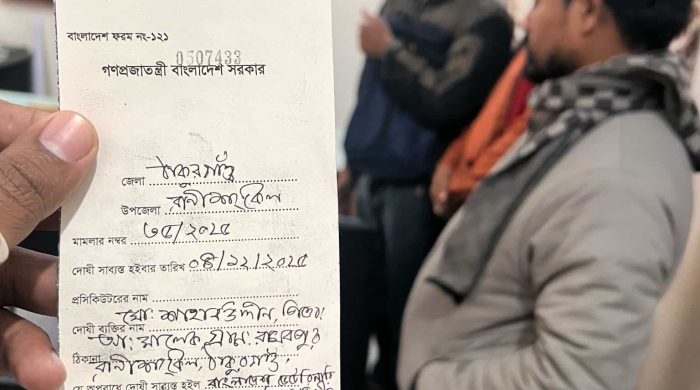 বাংলাদেশ ফরম নং-১২১
0507433
গণপ্রজাতন্ত্রী বাংলাদেশ সরকার
জেলা ঠাকুরগাঁও
উপজেলা রানীশংকৈল
মামলার নম্বর ৩৫/২০২৫
দোষী সাব্যস্ত হইবার তারিখ ০৪/১২/২০২৫
প্রসিকিউটরের নাম
মো: শাহাবউদ্দীন, পিতা:
দোষী ব্যক্তির নাম
মালেক, গ্রাম:
ঠিকানা
রানীশংকৈল, ঠাকুরগাঁও।
যে অপরাধে দোষী সাব্যস্ত হইল বাংলাদেশ